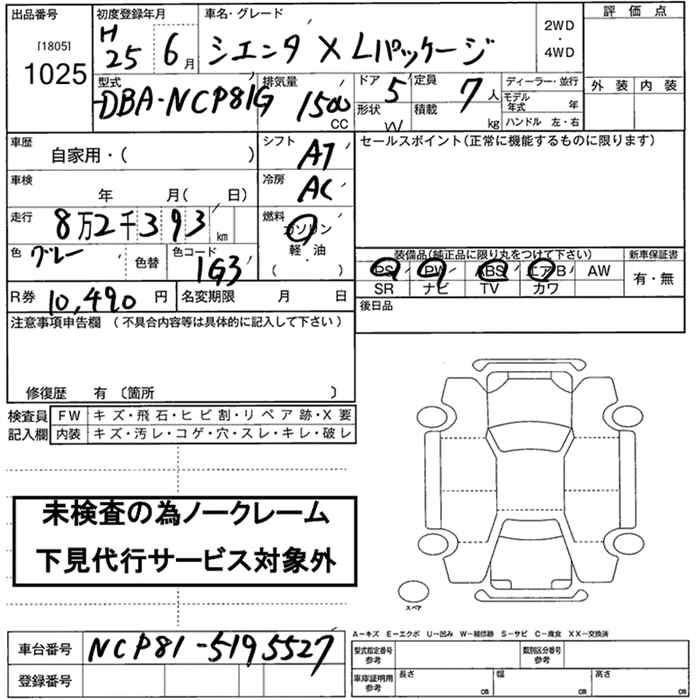 出品番号 初度登録年月 車名・グレード 2WD・4WD 評価点
[1805] H
1025 25 6月 シエンタ X Lパッケージ 外装 内装
型式 排気量 ドア 5 定員 7人 ディーラー・並行
DBA-NCP81G 1500 CC 形状 W 積載 kg モデル年式 年
ハンドル 左・右
車歴 自家用・( ) シフト AT セールスポイント(正常に機能するものに限ります)
車検 年 月( 日) 冷房 AC
走行 8万2千393km 燃料 ガソリン
軽・油
( )
色 グレー 色替 色コード 1G3 装備品(純正品に限り丸をつけて下さい) 新車保証書
PS PW ABS エアB AW 有・無
SR ナビ TV カワ
R券 10,490円 名変期限 月 日 後日品
注意事項申告欄 (不具合内容等は具体的に記入して下さい)
修復歴 有 〔箇所 〕
検査員 FW キズ・飛石・ヒビ割・リペア跡・X要
記入欄 内装 キズ・汚レ・コゲ・穴・スレ・キレ・破レ
未検査の為ノークレーム
下見代行サービス対象外
スペア
A-キズ E-エクボ U-凹み W-補修跡 S-サビ C-腐食 XX-交換済
車台番号 NCP81-5195527 型式指定番号 参考 類別区分番号 参考
登録番号 車庫証明用 参考 長さ cm 幅 cm 高さ cm